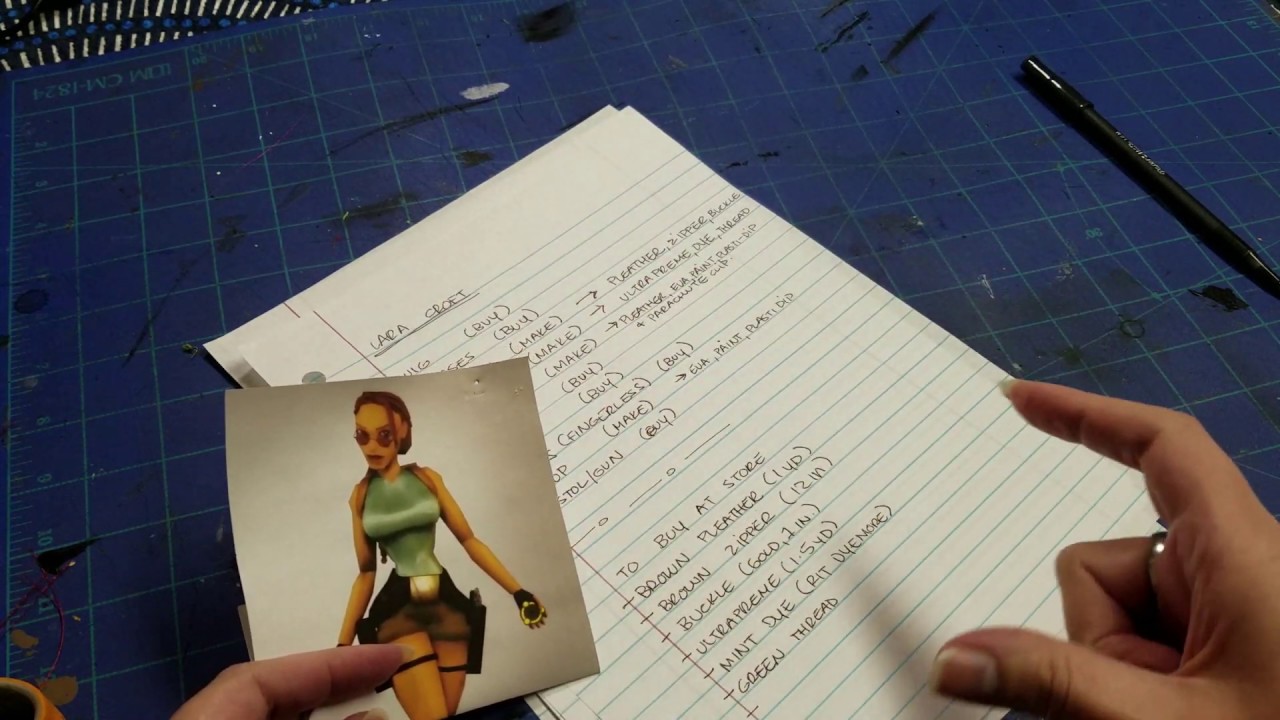 CM-1824
LARA CROFT
(BUY)
(BUY)
(MAKE) → PLEATHER, ZIPPER, BUCKLE
(MAKE) → ULTRAPREME, DYE, THREAD
(MAKE) → PLEATHER, EVA, PAINT, PLASTI-DIP
& PARACHUTE CLIP
(BUY)
(BUY)
(FINGERLESS) (BUY)
(MAKE) → EVA, PAINT, PLASTI-DIP
STOL/GUN (BUY)
TO BUY AT STORE
- BROWN PLEATHER (1 YD)
- BROWN ZIPPER (12 IN)
- BUCKLE (GOLD, 2 IN)
- ULTRAPREME (1.5 YD)
- MINT DYE (RIT DYEMORE)
- GREEN THREAD